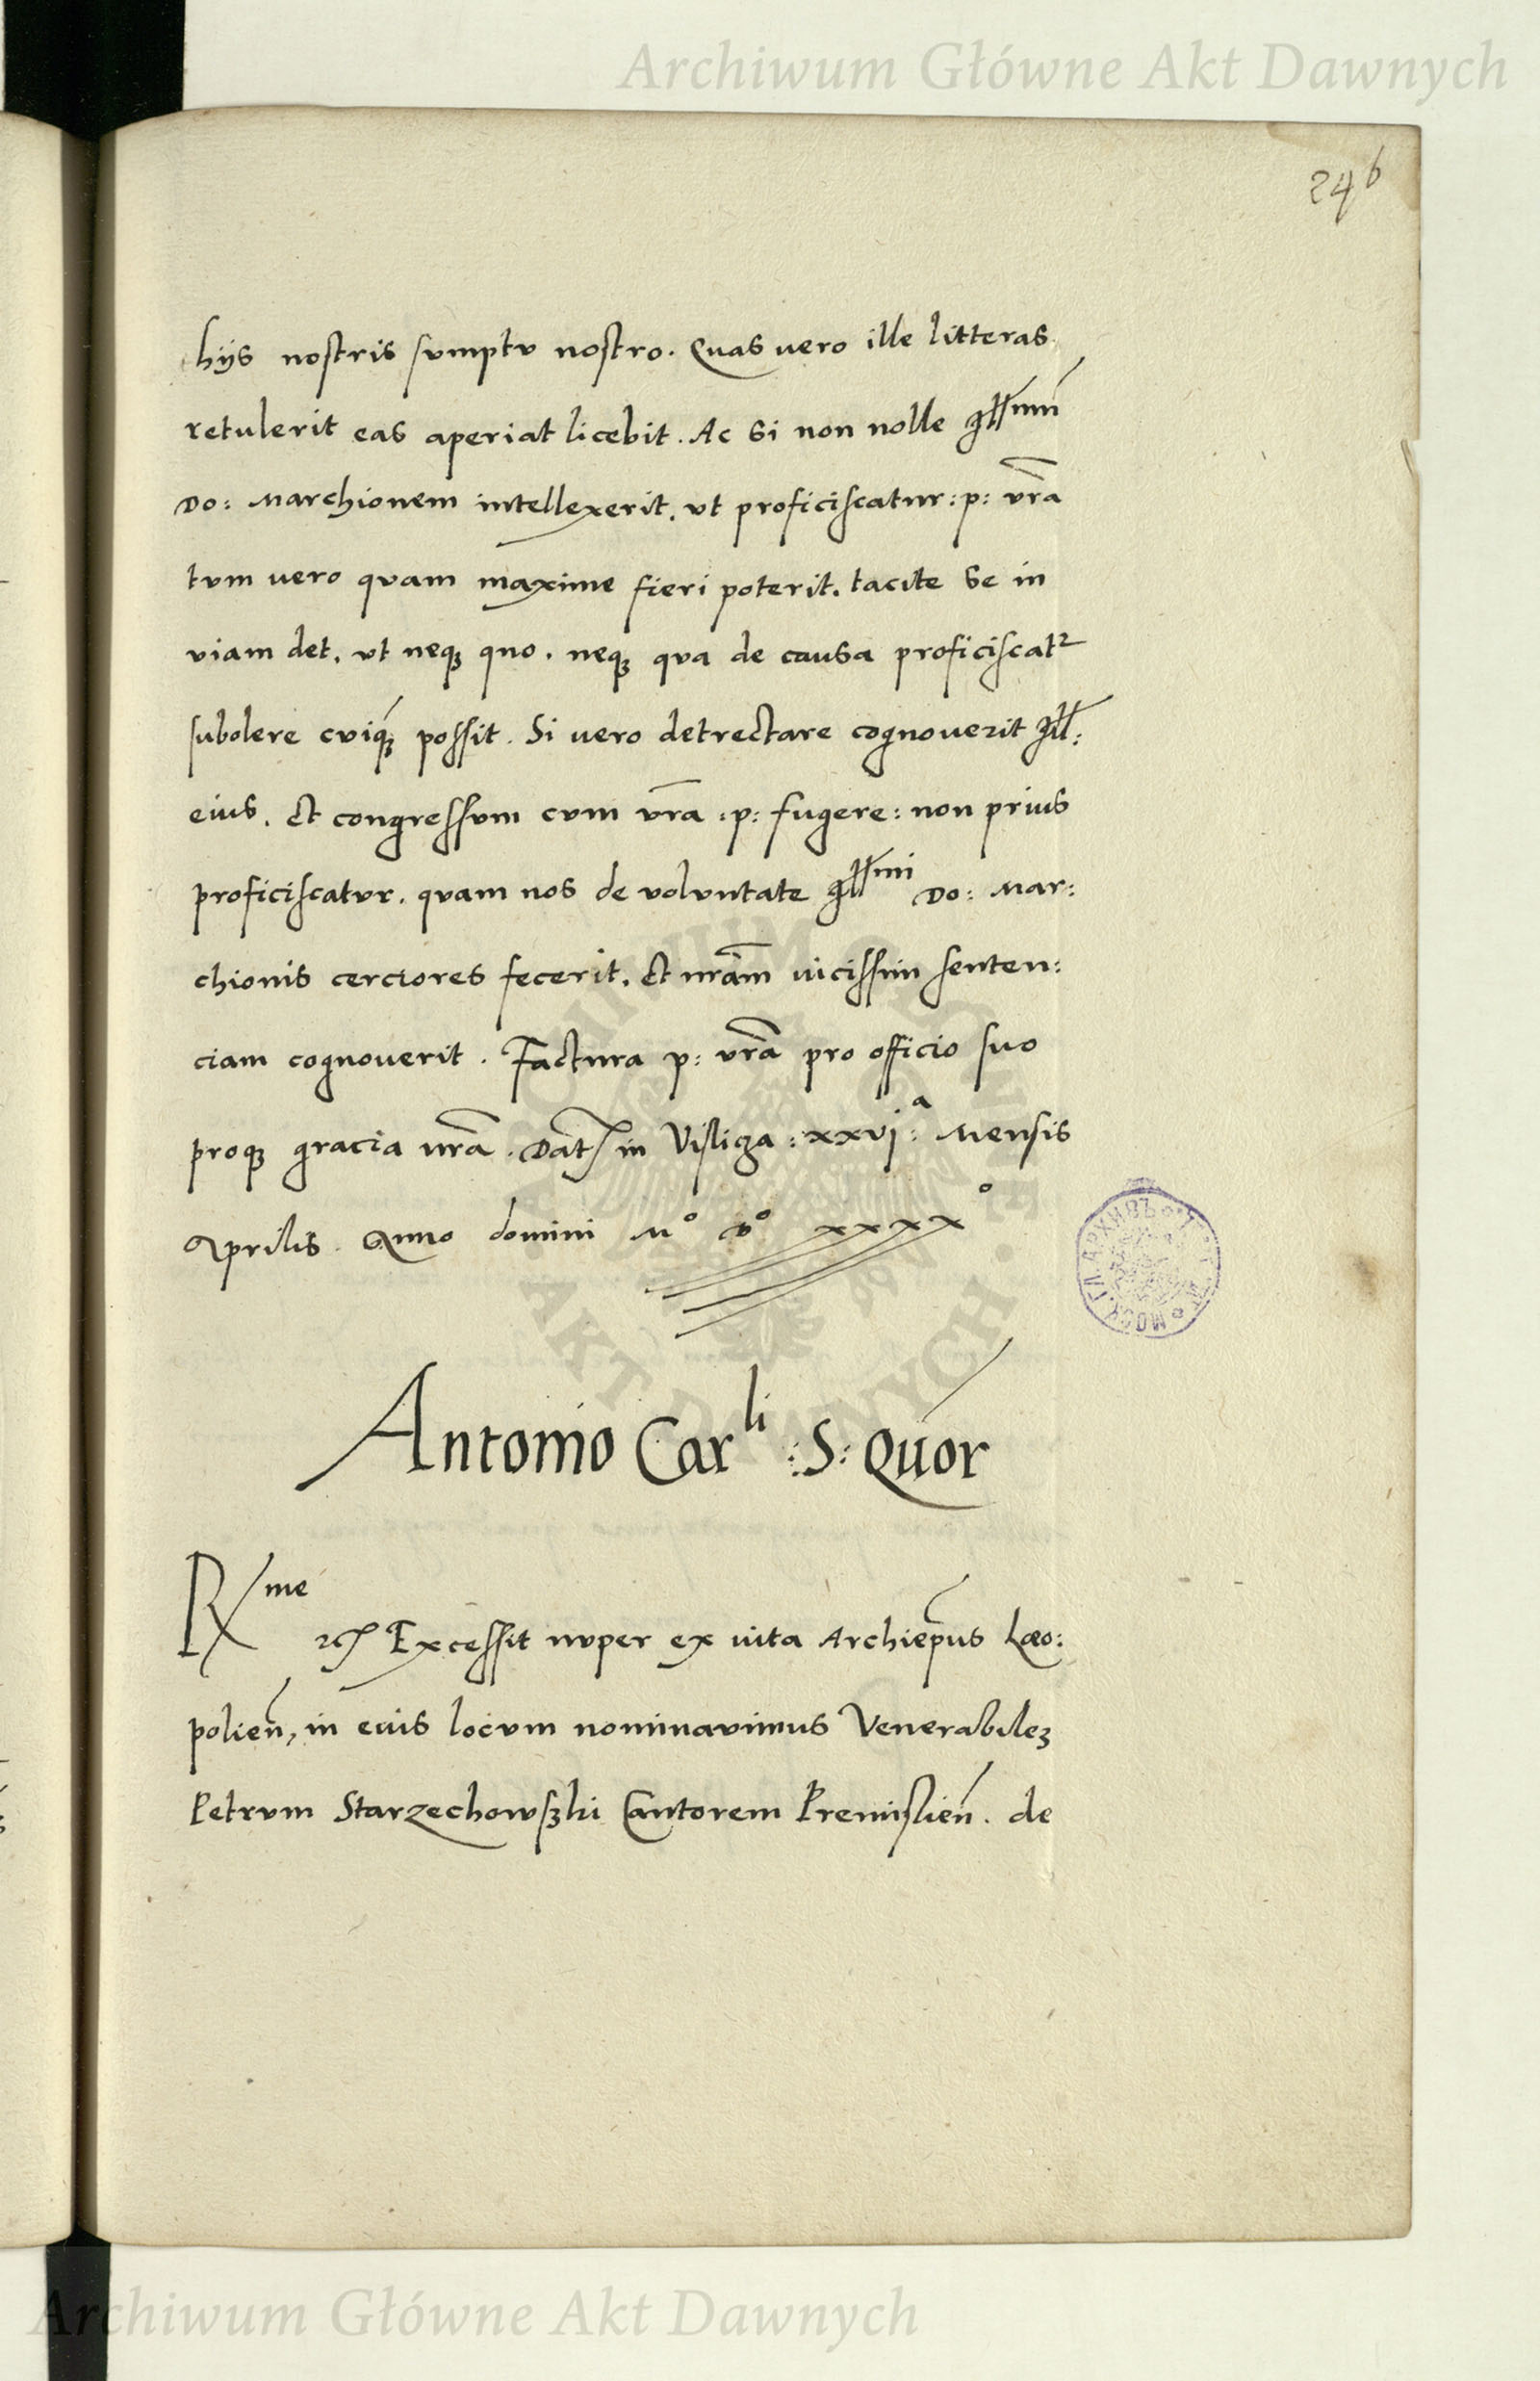 Archiwum Główne Akt Dawnych
246
hijs nostris sumptu nostro. Quas vero ille litteras
retulerit eas aperiat licebit. Ac si non nolle Ill^mum
Do: Marchionem intellexerit, ut proficiscatur: p: vr̃a
tum vero quam maxime fieri poterit, tacite se in
viam det, ut neqꝫ quo, neqꝫ qua de causa proficiscat²
subolere cuiqꝫ possit. Si vero detrectare cognouerit Ill:
eius, et congressum cum vr̃a :p: fugere: non prius
proficiscatur, quam nos de voluntate Ill^mi Do: Mar:
chionis cerciores fecerit, et nr̃am vicissim senten:
ciam cognouerit. Factura p: vr̃a pro officio suo
proqꝫ gracia nr̃a. Dat in Vislicza :xxvj^a: Mensis
Aprilis Anno domini M° D° xxxx°
Antonio Car^li :S: Quor
R^me Excessit nuper ex vita Archiep̃us Læo:
polien̄, in eius locum nominauimus Venerabileꝫ
Petrum Starzechowsꝫki Cantorem Premislien̄. de
Archiwum Główne Akt Dawnych